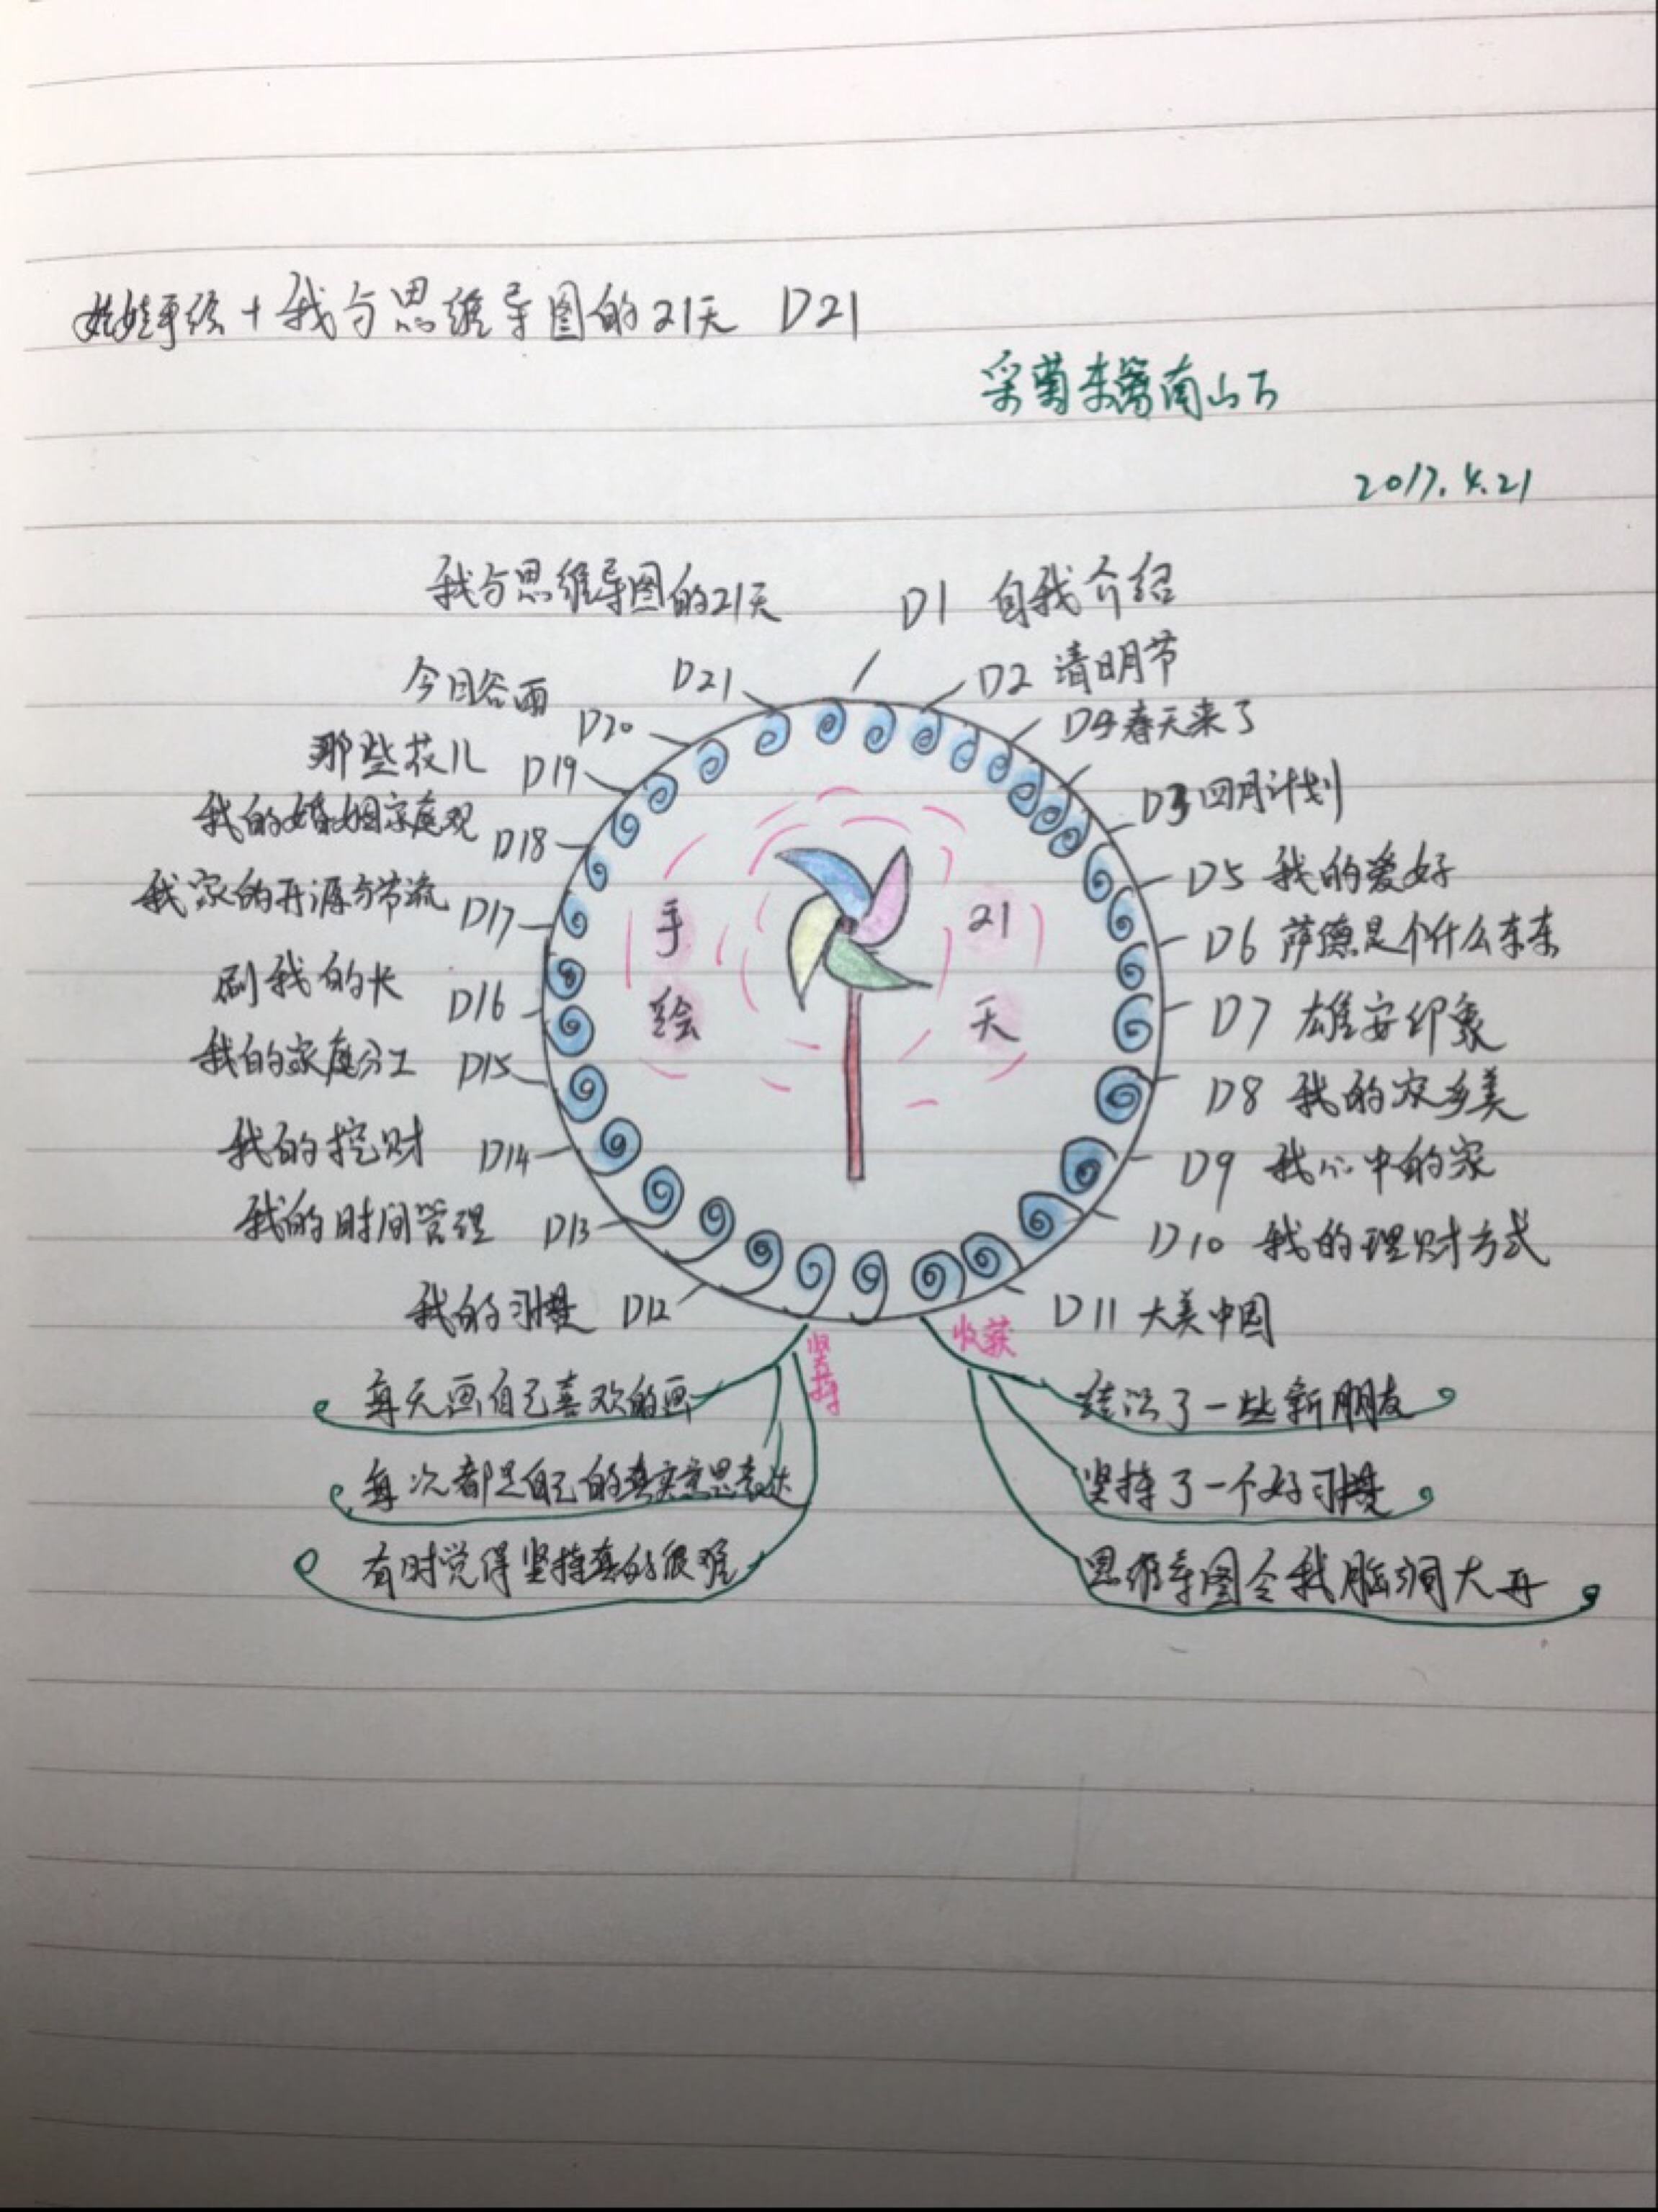 娃娃 + 我与思维导图的21天 D21
采菊东篱南山下
2017.4.21
我与思维导图的21天
D1 自我介绍
D2 清明节
D4 春天来了
D3 四月计划
D5 我的爱好
D6 萨德是个什么东东
D7 雄安印象
D8 我的家乡美
D9 我心中的家
D10 我的理财方式
D11 大美中国
我的习惯 D12
我的时间管理 D13
我的挖财 D14
我的家庭分工 D15
我的 D16
我家的开源与节流 D17
我的婚姻家庭观 D18
那些花儿 D19
今日谷雨 D20
D21
手绘
21天
坚持
每天画自己喜欢的画
每次都是自己的真实意思表达
有时觉得坚持真的很难
收获
结识了一些新朋友
坚持了一个好习惯
思维导图令我脑洞大开